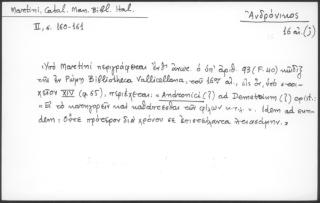 Martini, Catal. Man. Bibl. Ital.
II, σ. 160-161
Ἀνδρόνικος
16 αἰ. (;)
Ὑπὸ Martini περιγράφεται ἐνθ' ἄνω ὁ ὑπ' ἀριθ. 93 (F. 40) κῶδιξ
τῆς ἐν Ῥώμῃ Bibliotheca Vallicellana, τοῦ 16ου αἰ., εἰς ὅν, ὑπὸ
XIV (φ. 65), περιέχεται: «Andronici (?) ad Demetrium (?) epist.:
«Εἰ τὸ κατηγορεῖν καὶ καθάπτεσθαι τῶν φίλων κ.τ.λ.». Idem ad eun-
dem: Οὔτε πρότερον διὰ χρόνου σε ἐπιστέλλοντα